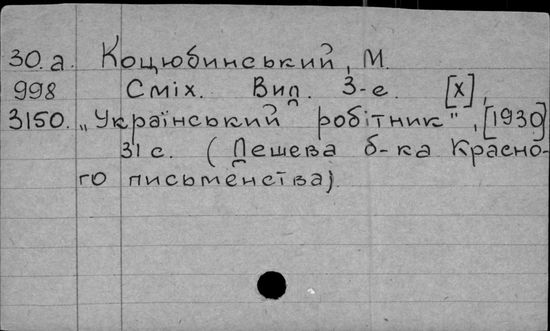 30.а. Коцюбинський, М.
998 Сміх. Вип. 3-е. [Х],
3150. „Український робітник", [1930]
31 с. (Дешева б-ка Красно-
го письменства).